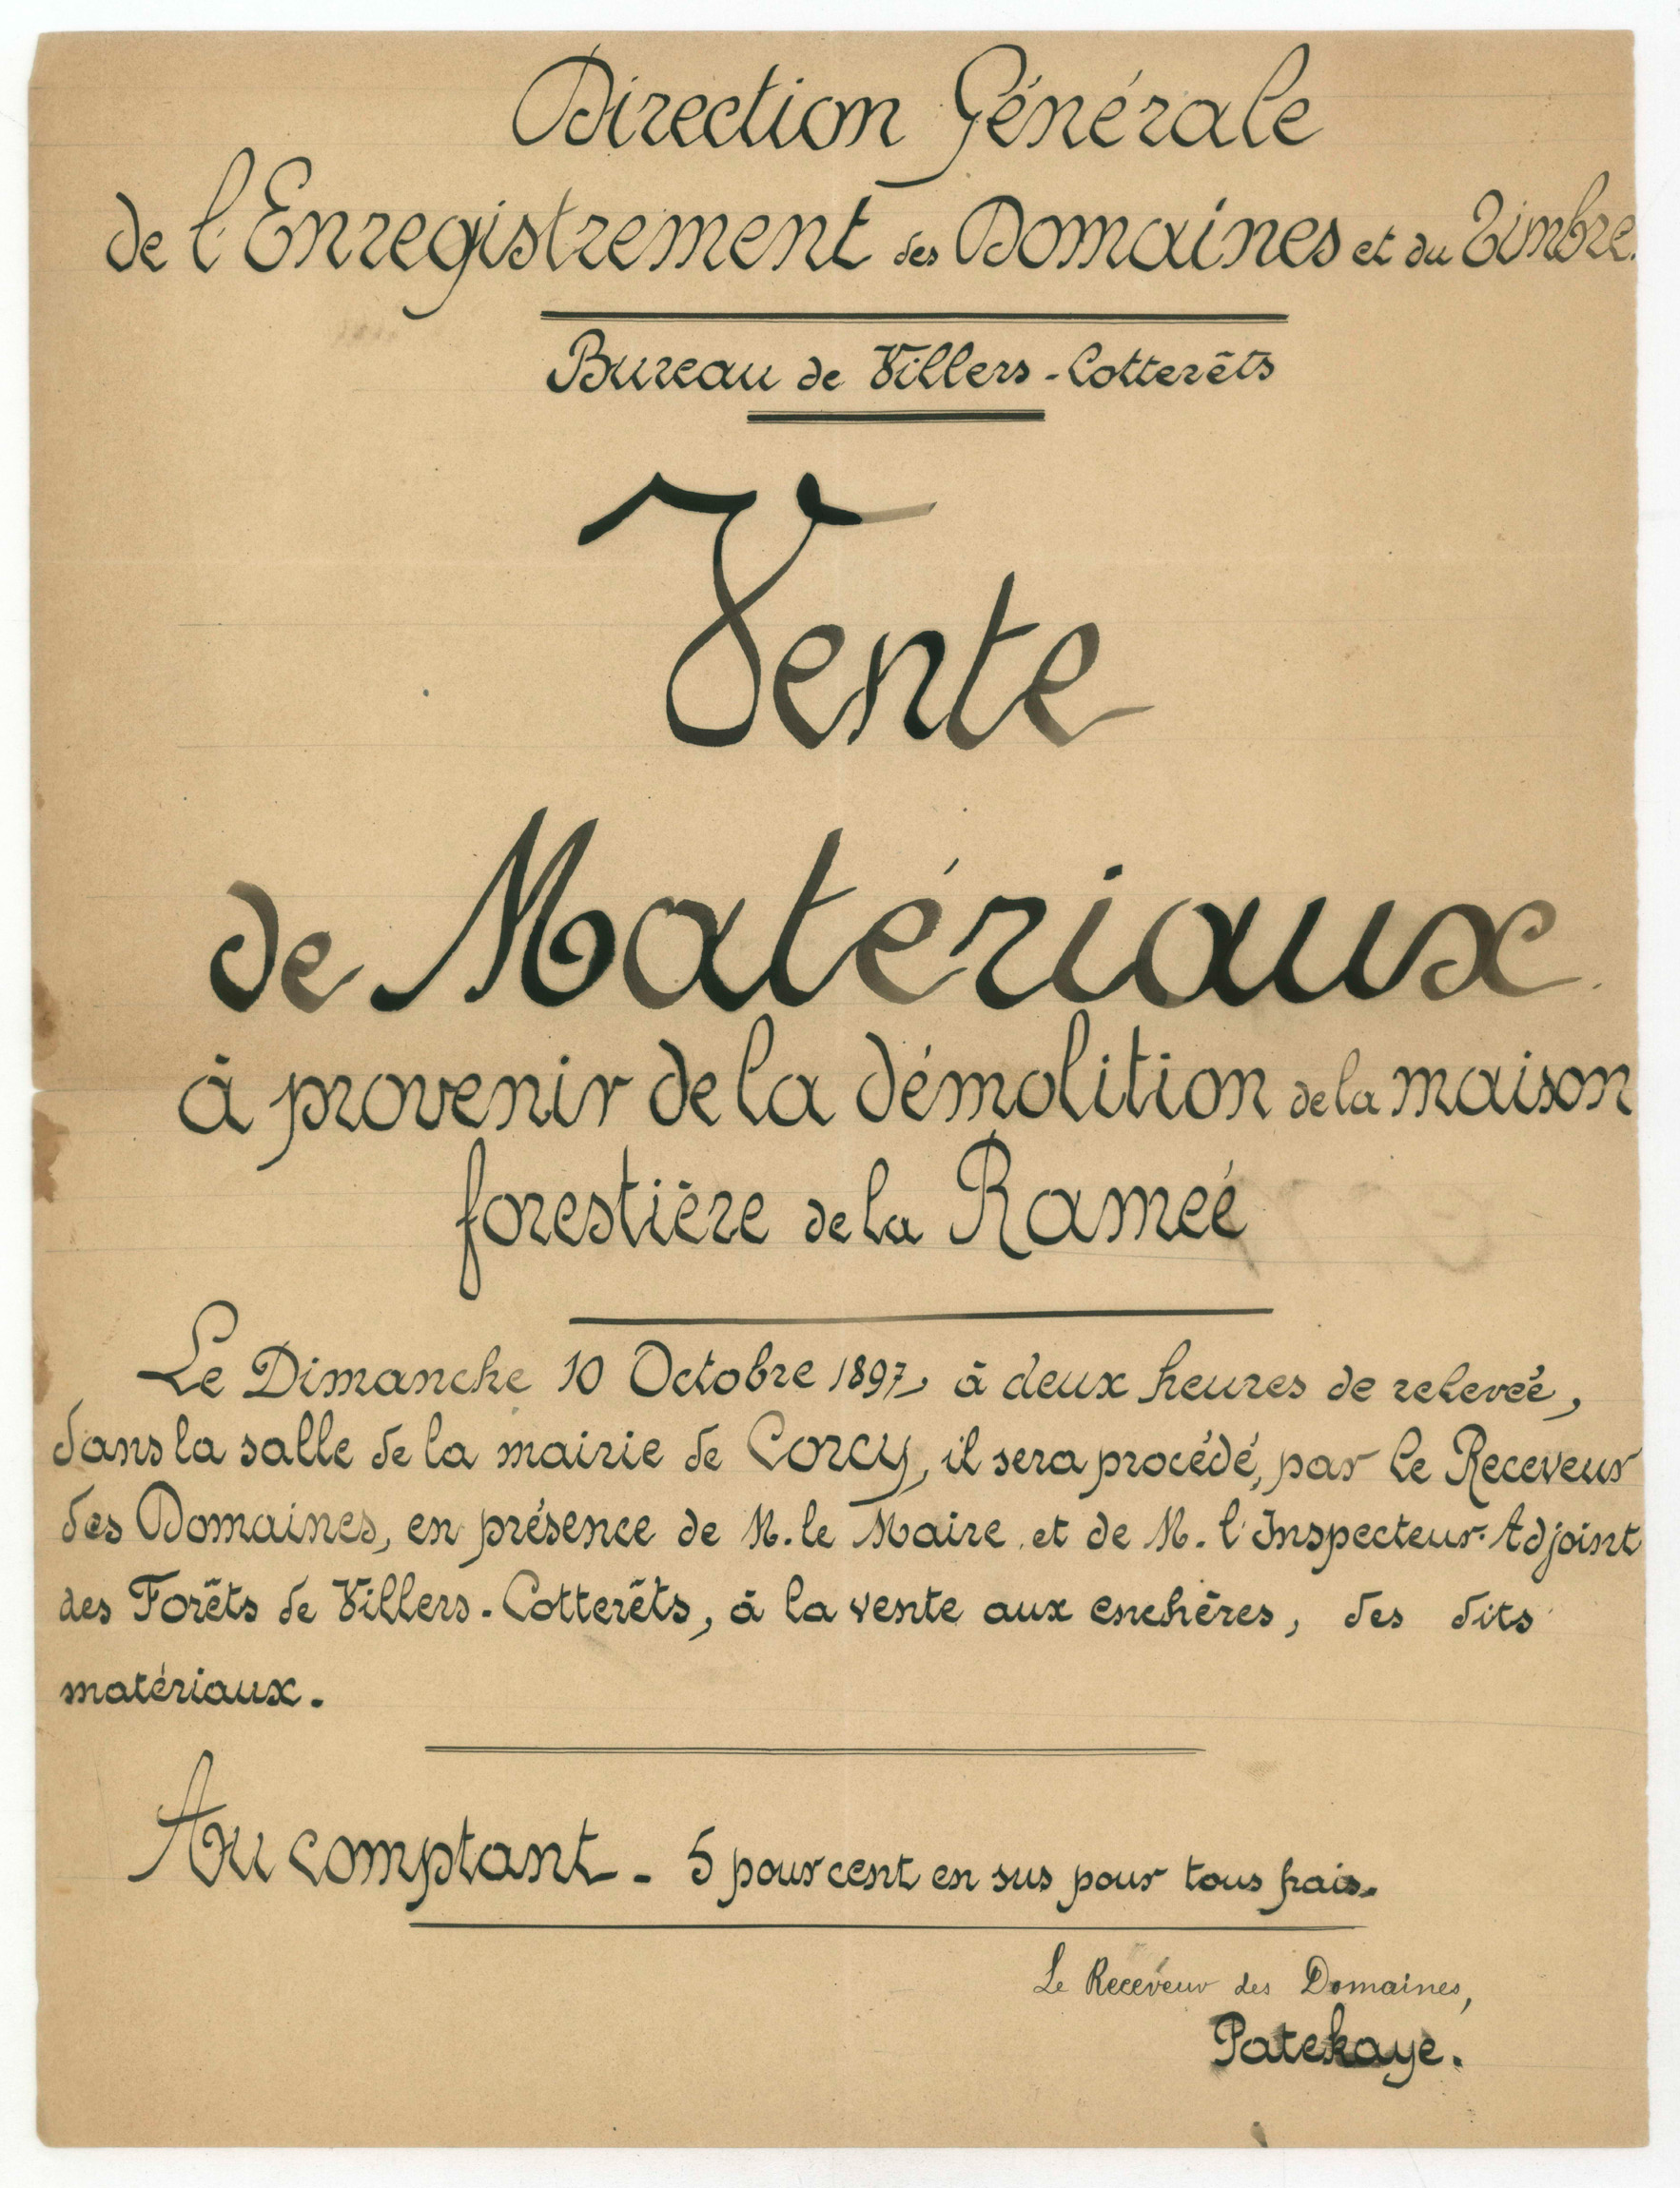 Direction Générale
de l'Enregistrement des Domaines et du Timbre.
Bureau de Villers-Cotterêts
Vente
de Matériaux
à provenir de la démolition de la maison
forestière de la Ramée
Le Dimanche 10 Octobre 1897, à deux heures de relevée,
dans la salle de la mairie de Corcy, il sera procédé, par le Receveur
des Domaines, en présence de M. le Maire et de M. l'Inspecteur-Adjoint
des Forêts de Villers-Cotterêts, à la vente aux enchères, des dits
matériaux.
Au comptant - 5 pour cent en sus pour tous frais.
Le Receveur des Domaines,